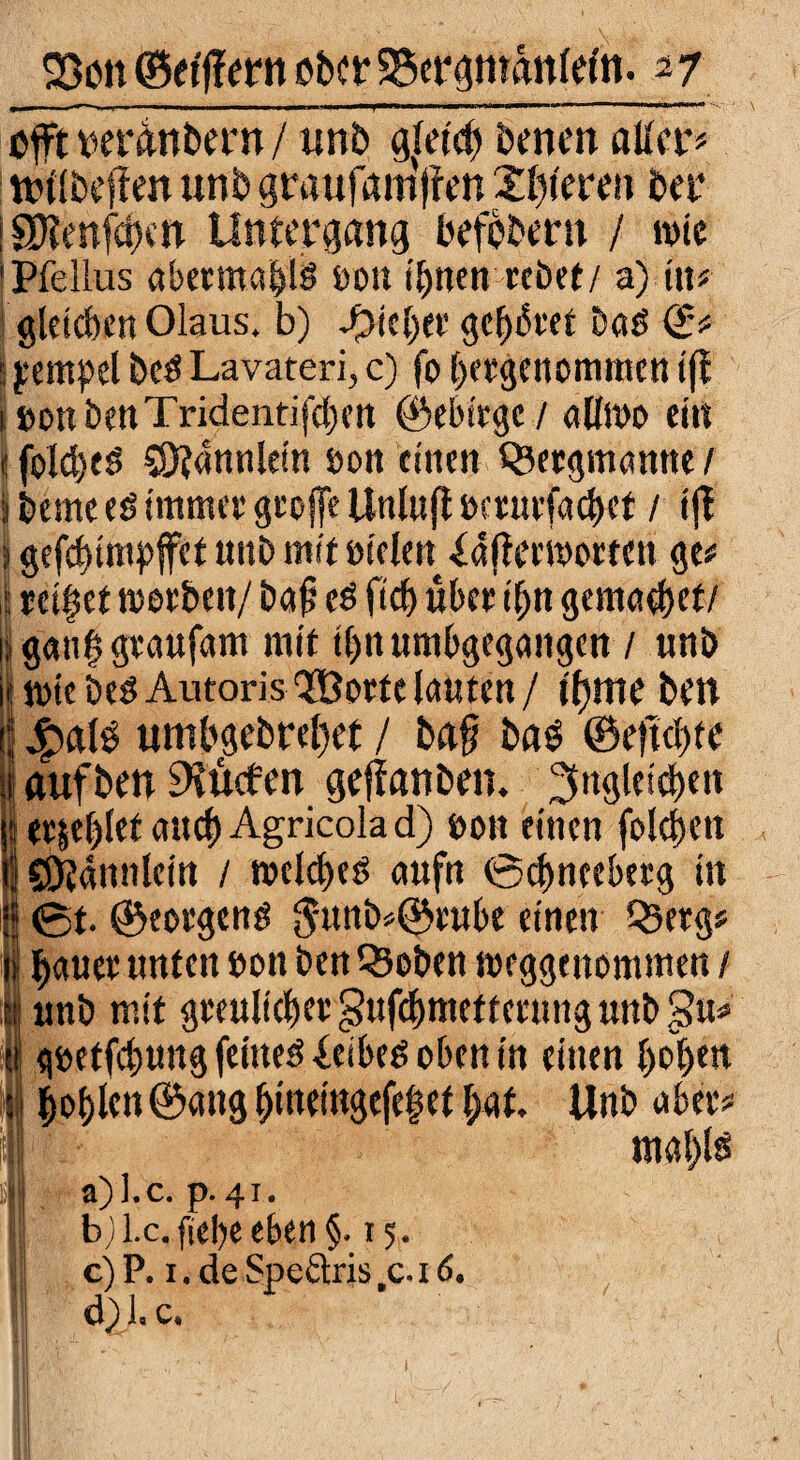 Von Geistern oder Bergmänlein. 27
offt verändern / und gleich denen aller⸗
wildesten und grausamsten Thieren der
Menschen Untergang befödern / wie
Psellus abermahls von ihnen redet / a) in⸗
gleichen Olaus. b) Hieher gehöret das E⸗
xempel des Lavateri, c) so hergenommen ist
von den Tridentischen Gebirge / allwo ein
solches Männlein von einen Bergmanne /
deme es immer grosse Unlust verursachet / ist
geschimpffet und mit vielen Lästerworten ge⸗
reitzet worden / daß es sich über ihn gemachet /
gantz grausam mit ihn umbgegangen / und
wie des Autoris Worte lauten / ihme den
Hals umbgedrehet / daß das Gesichte
auf den Rücken gestanden. Ingleichen
erzehlet auch Agricola d) von einen solchen
Männlein / welches aufn Schneeberg in
St. Georgens Fund⸗Grube einen Berg⸗
hauer unten von den Boden weggenommen /
und mit greulicher Zuschmetterung und Zu⸗
qvetschung seines Leibes oben in einen hohen
hohlen Gang hineingesetzet hat. Und aber⸗
mahls
a) l. c. p. 41.
b) l.c. siehe eben §. 15.
c) P. 1. de Spectris, c. 16.
d) l. c.